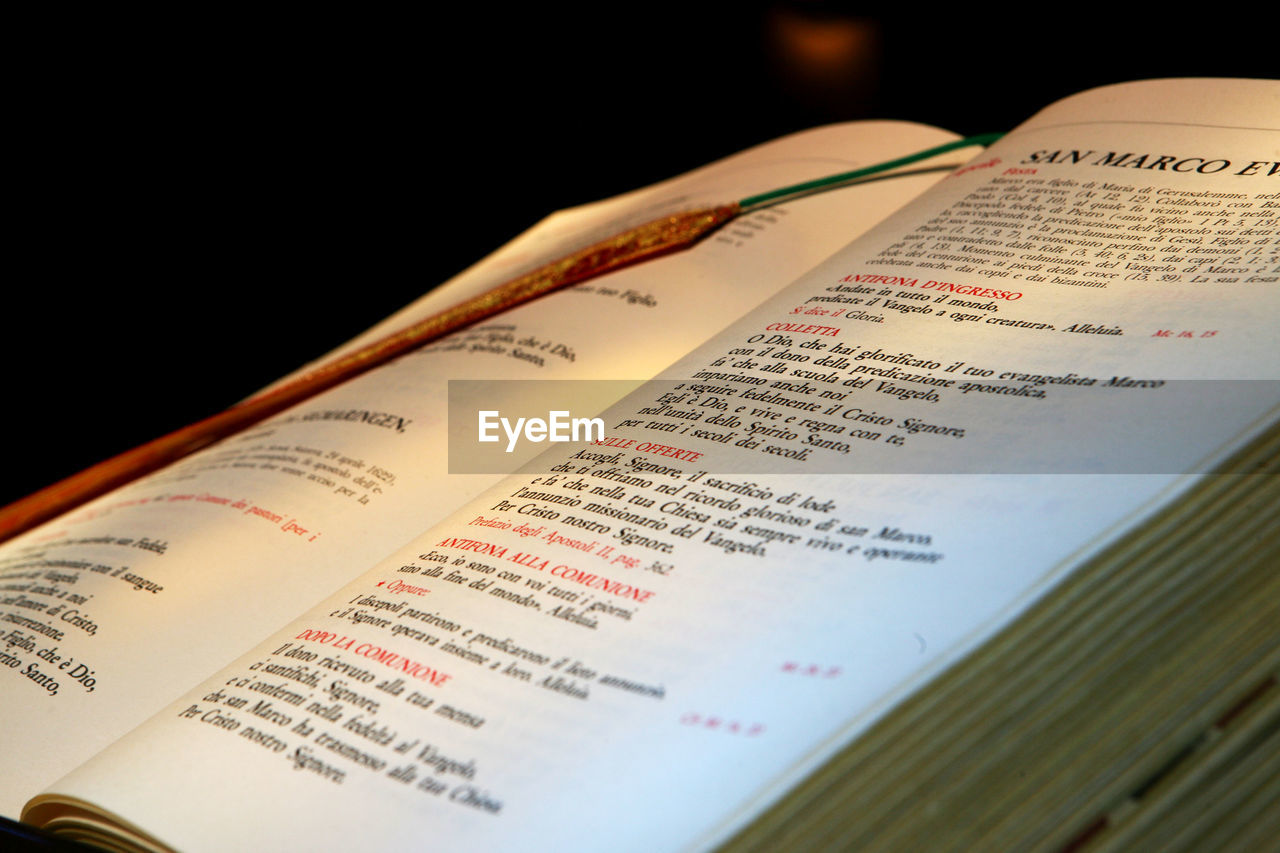 suo Figlio,
Figlio, che è Dio,
dello Spirito Santo,
SIGMARINGEN,
24 aprile 1622).
Si spostò dell'e-
due senza posa, per
acceso per la
Comune dei pastori [per
san Fedele,
con il sangue
Vangelo,
anche a noi
d'amore di Cristo,
risurrezione.
Figlio, che è Dio,
Spirito Santo,
SAN MARCO EV
aprile
FESTA
Marco era figlio di Maria di Gerusalemme, nel
rato dal carcere (At 12, 12). Collaborò con Ba
Paolo (Col 4, 10), al quale fu vicino anche nella
Discepolo fedele di Pietro («mio figlio» 1 Pt 5, 13)
lo, raccogliendo la predicazione dell'apostolo sur
del suo annunzio è la proclamazione di Gesù, Figlio di
Padre (1, 11; 9, 7), riconosciuto perfino dai demoni (
tato e contraddetto dalle folle (3, 40; 6, 2), dai capi (2, 1.
(4, 13). Momento culminante del Vangelo di Marco è
fede del centurione ai piedi della croce (15, 39). La sua festa
celebrata anche dai copti e dai bizantini.
ANTIFONA D'INGRESSO
«Andate in tutto il mondo,
predicate il Vangelo a ogni creatura». Alleluia. Mc 16, 15
Si dice il Gloria.
COLLETTA
O Dio, che hai glorificato il tuo evangelista Marco
con il dono della predicazione apostolica,
fa' che alla scuola del Vangelo,
impariamo anche noi
a seguire fedelmente il Cristo Signore,
Egli è Dio, e vive e regna con te,
nell'unità dello Spirito Santo,
per tutti i secoli dei secoli.
EyeEm
SULLE OFFERTE
Accogli, Signore, il sacrificio di lode
che ti offriamo nel ricordo glorioso di san Marco,
e fa' che nella tua Chiesa sia sempre vivo e operante
l'annunzio missionario del Vangelo.
Per Cristo nostro Signore.
Prefazio degli Apostoli II, pag. 362
ANTIFONA ALLA COMUNIONE
«Ecco, io sono con voi tutti i giorni,
sino alla fine del mondo». Alleluia.
Oppure:
I discepoli partirono e predicarono il lieto annunzio
e il Signore operava insieme a loro. Alleluia.
DOPO LA COMUNIONE
Il dono ricevuto alla tua mensa
ci santifichi, Signore,
e ci confermi nella fedeltà al Vangelo,
che san Marco ha trasmesso alla tua Chiesa.
Per Cristo nostro Signore.